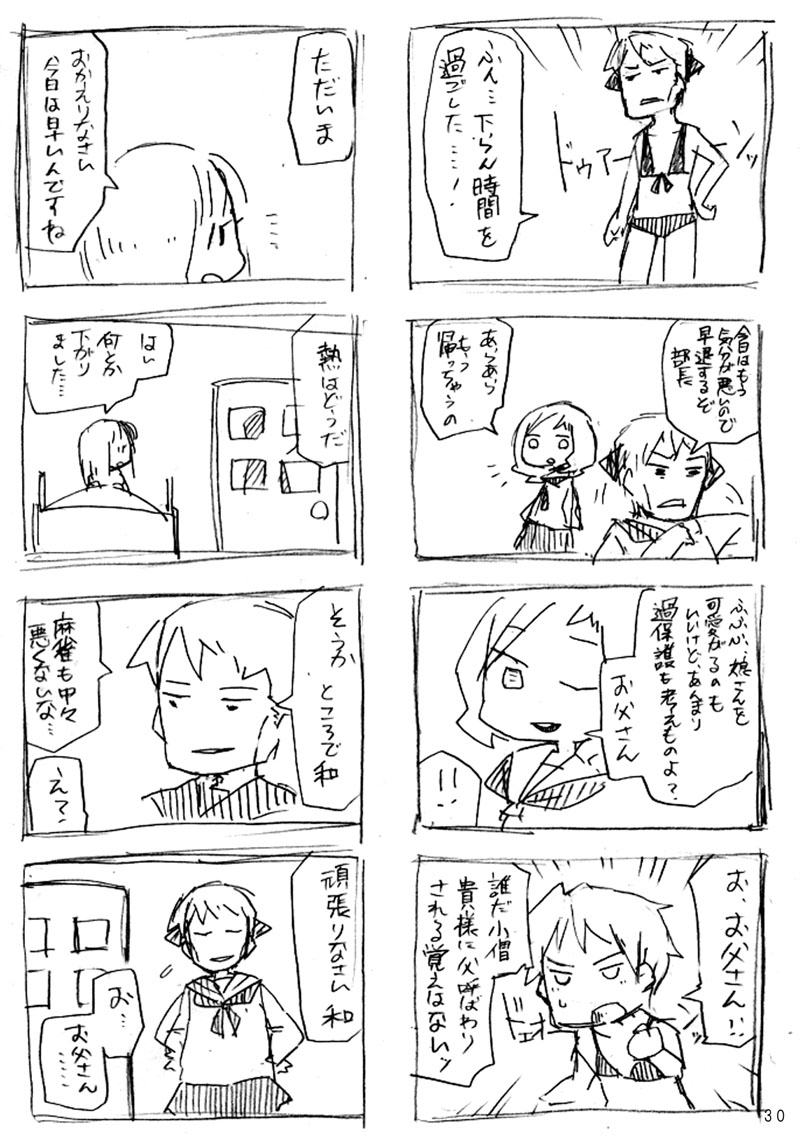 ふん…下らん時間を
過ごした……！
ドゥアーーーンッ
今日はもう
気分が悪いので
早退するぞ
部長
あらあら
もう
帰っちゃうの
ふふふ、娘さんを
可愛がるのも
いいけど、あんまり
過保護も考えものよ？
お父さん
！！
お、お父さん！！
誰だ小僧
貴様に父呼ばわり
される覚えはないッ
ただいま
おかえりなさい
今日は早いんですね
熱はどうだ
はい
何とか
下がり
ました…
そうか
ところで和
麻雀も中々
悪くないな…
え？！
頑張りなさい 和
お…
お父さん
……
30